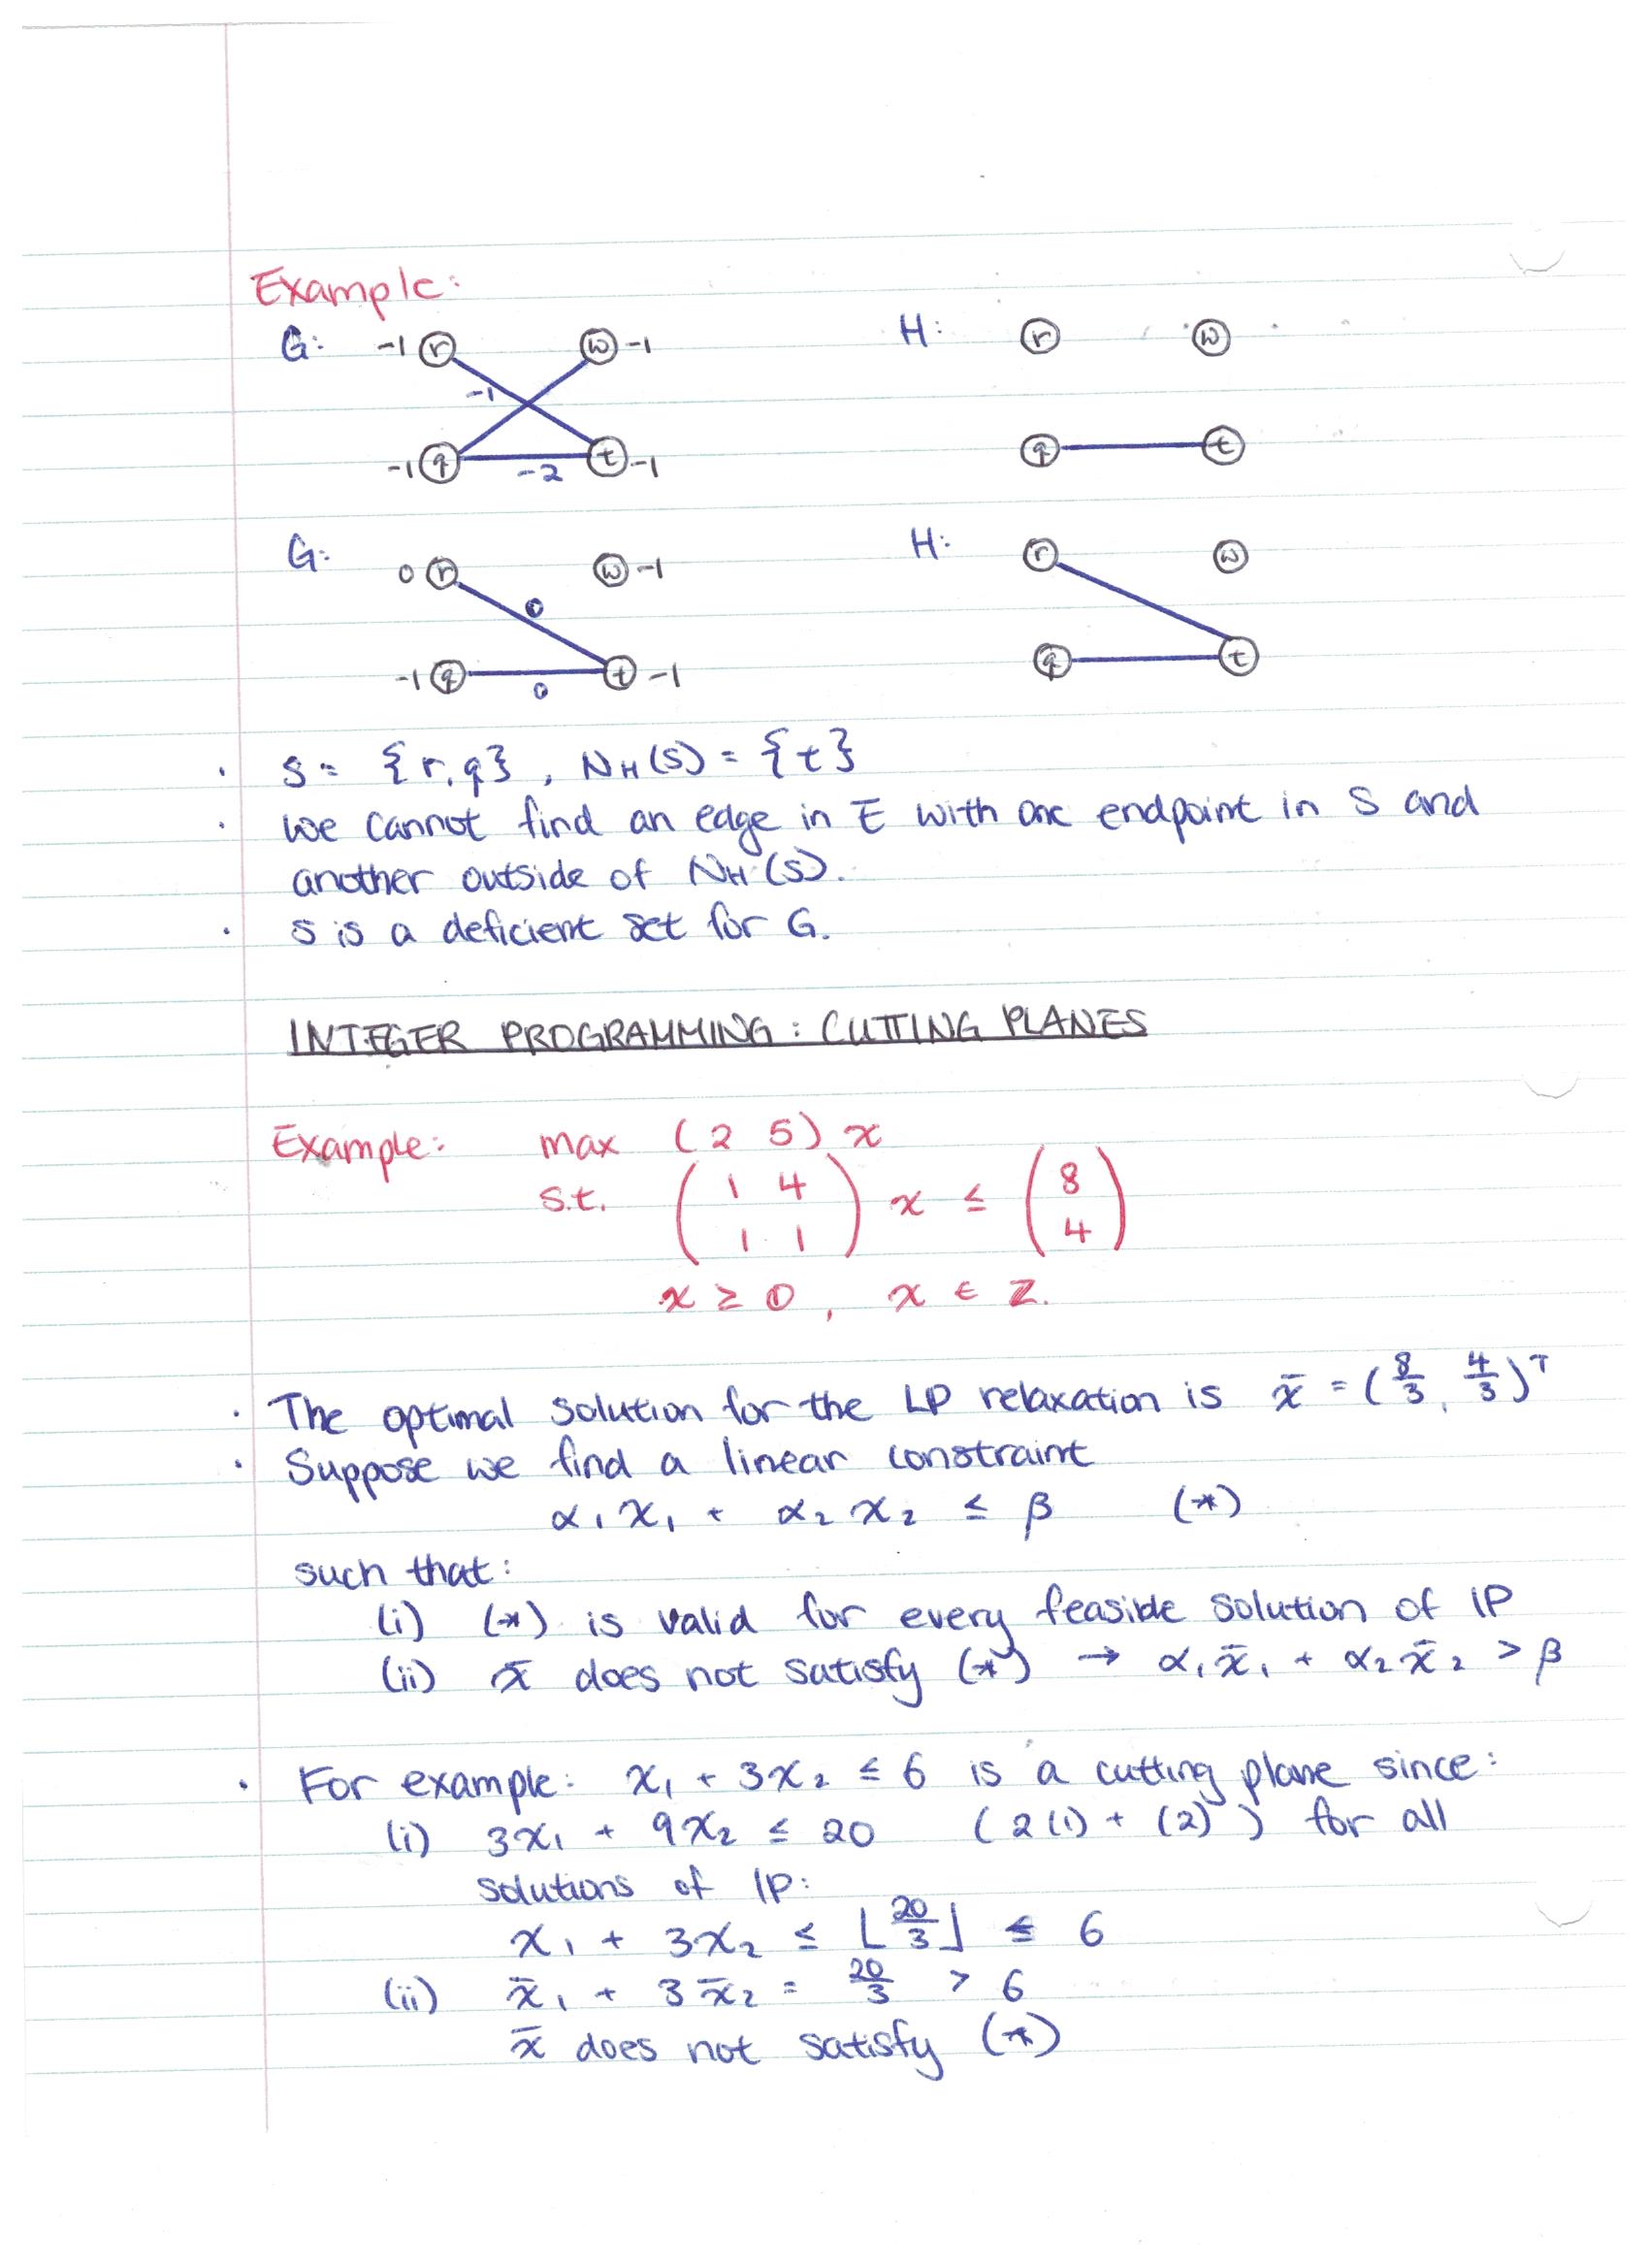 Example:
G: -1 r w -1 H: r w
-1
-1 q -2 t -1 q t
G: 0 r w -1 H: r w
0
-1 q 0 t -1 q t
· S = {r, q}, N_H(S) = {t}
· We cannot find an edge in E with one endpoint in S and
another outside of N_H(S).
· S is a deficient set for G.
INTEGER PROGRAMMING: CUTTING PLANES
Example: max (2 5) x
s.t. (1 4; 1 1) x ≤ (8; 4)
x ≥ 0, x ∈ ℤ.
· The optimal solution for the LP relaxation is x̄ = (8/3, 4/3)ᵀ
· Suppose we find a linear constraint
α₁x₁ + α₂x₂ ≤ β (*)
such that:
(i) (*) is valid for every feasible solution of IP
(ii) x̄ does not satisfy (*) → α₁x̄₁ + α₂x̄₂ > β
· For example: x₁ + 3x₂ ≤ 6 is a cutting plane since:
(i) 3x₁ + 9x₂ ≤ 20 (2(1) + (2)) for all
solutions of IP:
x₁ + 3x₂ ≤ ⌊20/3⌋ ≤ 6
(ii) x̄₁ + 3x̄₂ = 20/3 > 6
x̄ does not satisfy (*)